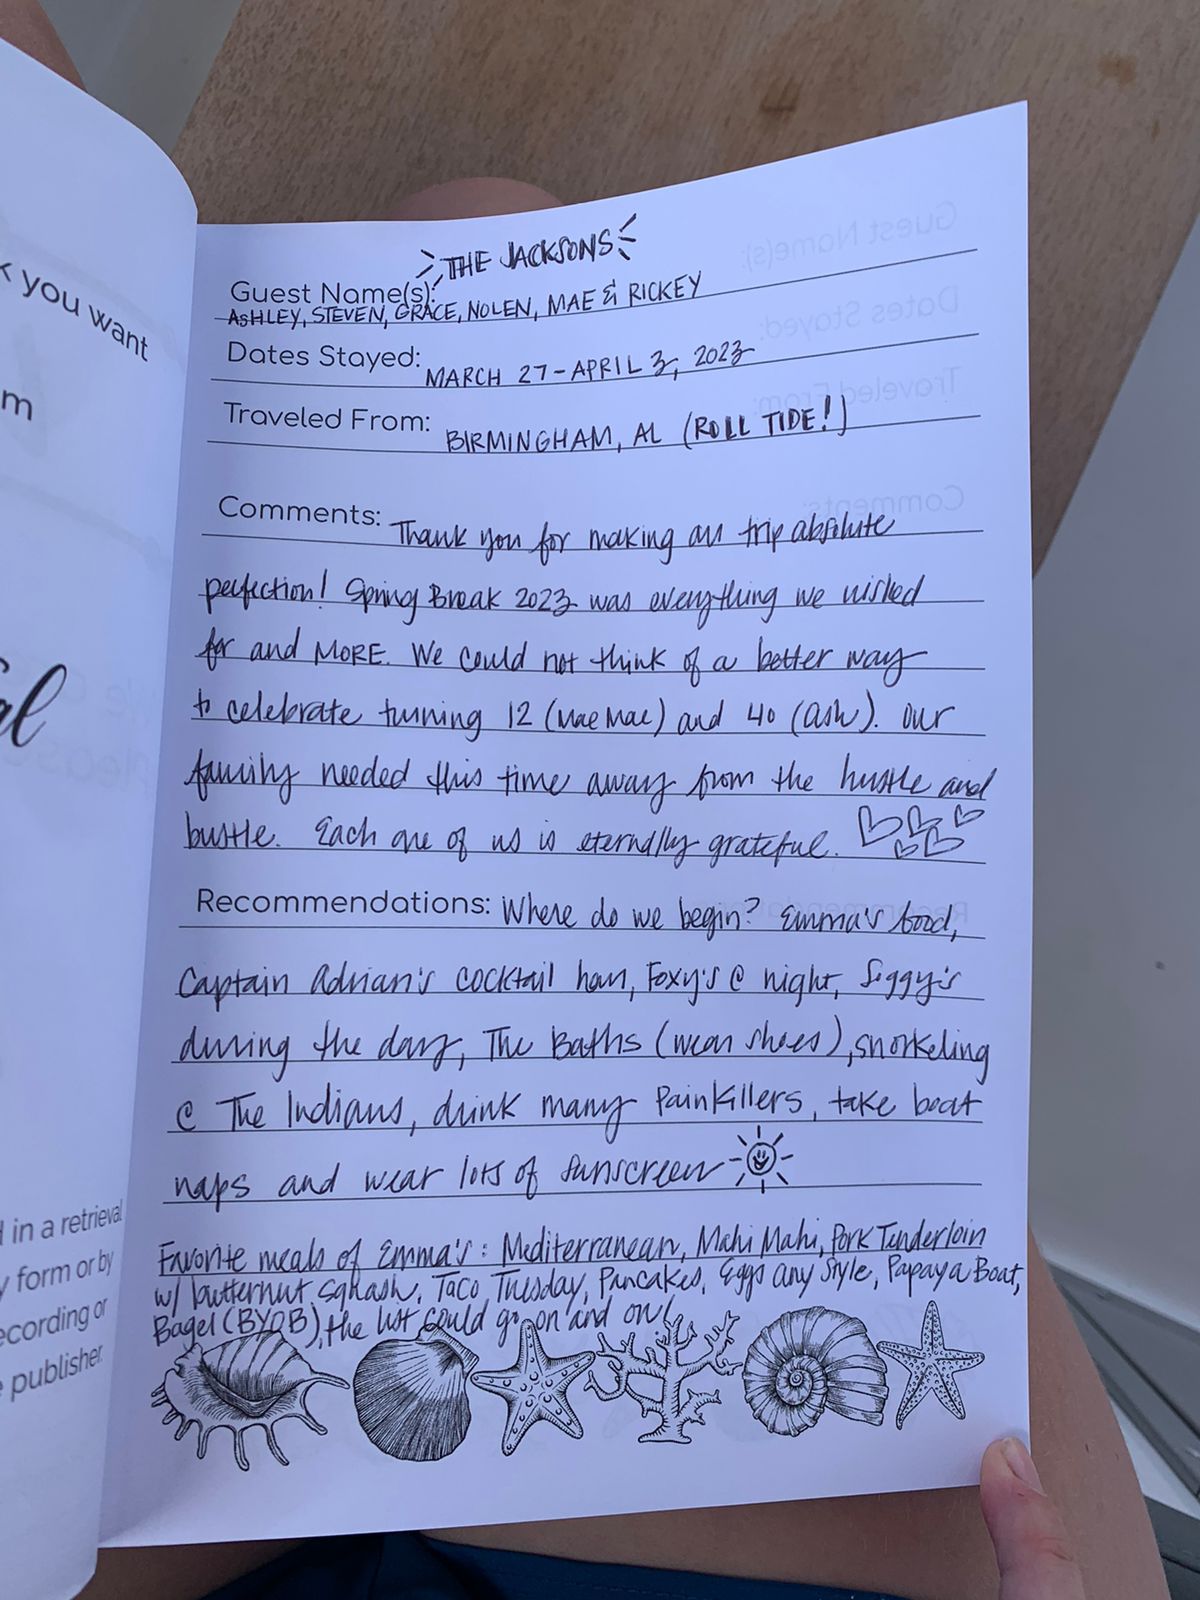 k you want
m
al
d in a retrieval
y form or by
ecording or
e publisher.
THE JACKSONS
Guest Name(s):
ASHLEY, STEVEN, GRACE, NOLEN, MAE & RICKEY
Dates Stayed: MARCH 27-APRIL 3, 2023
Traveled From: BIRMINGHAM, AL (ROLL TIDE!)
Comments: Thank you for making our trip absolute
perfection! Spring Break 2023 was everything we wished
for and MORE. We could not think of a better way
to celebrate turning 12 (Mae Mae) and 40 (Ash). Our
family needed this time away from the hustle and
bustle. Each one of us is eternally grateful.
Recommendations: Where do we begin? Emma's food,
Captain Adrian's cocktail hour, Foxy's @ night, Siggy's
during the day, The Baths (wear shoes), snorkeling
@ The Indians, drink many Painkillers, take boat
naps and wear lots of sunscreen
Favorite meals of Emma's: Mediterranean, Mahi Mahi, Pork Tenderloin
w/ butternut squash, Taco Tuesday, Pancakes, Eggs any style, Papaya Boat,
Bagel (BYOB), the list could go on and on!